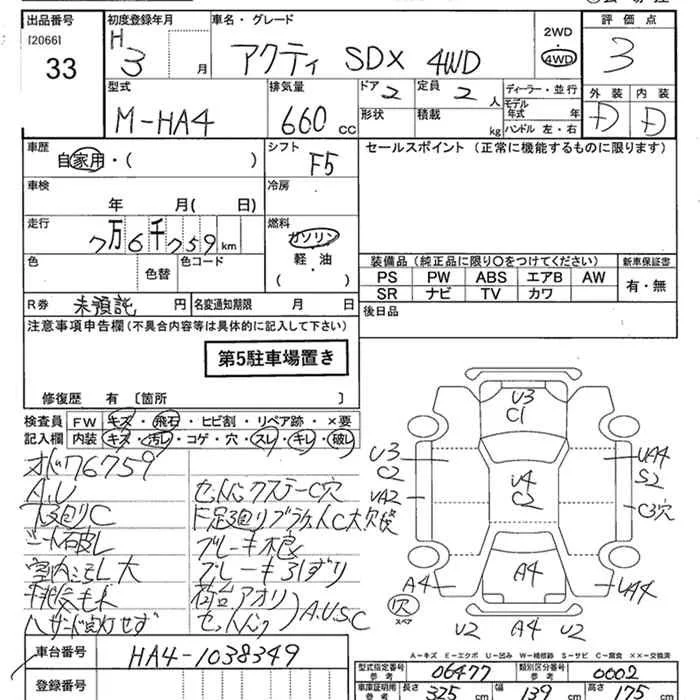 出品番号 初度登録年月 車名・グレード 2WD 評価点
[2066] H 4WD
33 3 月 アクティ SDX 4WD 3
型式 排気量 ドア 2 定員 2 人 ディーラー・並行 外装 内装
M-HA4 660 cc 形状 積載 kg モデル年式 年 D D
ハンドル 左・右
車歴 シフト セールスポイント (正常に機能するものに限ります)
自家用・( ) F5
車検 冷房
年 月( 日)
走行 燃料
7万6千759 km ガソリン
色 色替 色コード 軽・油
( ・ )
装備品 (純正品に限り○をつけてください) 新車保証書
PS PW ABS エアB AW 有・無
SR ナビ TV カワ
R券 未預託 円 名変通知期限 月 日 後日品
注意事項申告欄 (不具合内容等は具体的に記入して下さい)
第5駐車場置き
修復歴 有 〔箇所 〕
検査員 FW キズ・飛石・ヒビ割・リペア跡・×要
記入欄 内装 キズ・汚レ・コゲ・穴・スレ・キレ・破レ
76759
A.U
下廻りC
シート破レ
室内汚レ大
ハザード点灯せず
ブレーキ不良
ブレーキ引ずり
荷台アオリ
A.U.S.C
U3
C1
U3
C2
UA2
U4
C2
UA4
S2
C3穴
A4
A4
UA4
穴
スペア
U2 A4 U2
A-キズ E-エクボ U-凹み W-補修跡 S-サビ C-腐食 XX-交換済
車台番号 HA4-1038349
登録番号
型式指定番号 参考 06477 類別区分番号 参考 0002
車庫証明用 参考 長さ 325 cm 幅 139 cm 高さ 175 cm